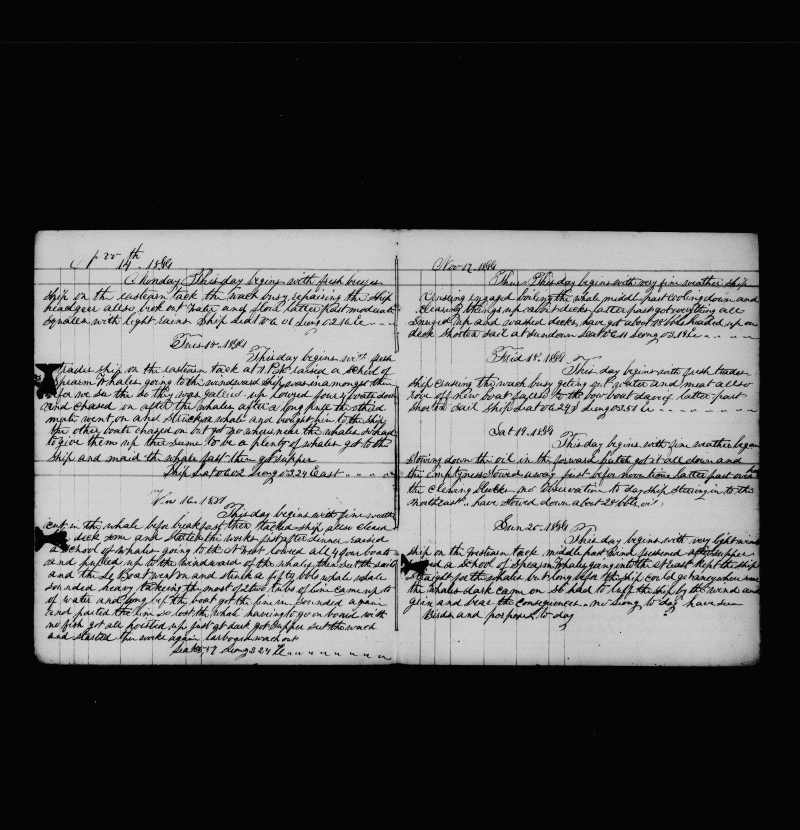 14. 1884
Monday This day begins with fresh breezes
ship on the eastearn tack the wach busy repairing the ship
headgear allso brok out water and flour latter part moderate
squales with light rains Ship Lat 0 6 01 Long 52 16 E
Tues 15. 1884
This day begins with fresh
trades ship on the eastearn tack at 1 P.M. raised a school of
Spearm Whales going to the windward ship was in amongst them
befor we see the so they was gallied up lowred four 4 boats down
and chased on after the whales after a long pull the third
mate went on and struck a whale and brought him to the ship
the other boats chased on but got no where near the whales and had
to give them up there seems to be a plenty of whales got to the
ship and maid the whale fast then got supper
Ship Lat 0 6 02 Long 53 24 East
Nov 16. 1884
This day begins with fine weather
cut in the whale befor breakfast then tacked ship allso cleard
deck some and started the works just after dinner raised
a school of whales going to the N West lowred all 4 four boats
and pulled up to the windward of the whales then set the sails
and the boat went on and struck a fifty bble whale whale
sounded heavy taking the most of 2 two tubs of line came up to
of water and the boat got the line in sounded again
and parted the line so lost the whale having to go on board with
no fish got all hoisted up just at dark got supper set the wach
and started the works again larboard wach out
Long 52 47 E
Nov 17. 1884
Thurs This day begins with very fine weather ship
Crusing engaged boiling the whale middle part cooling down and
clearing things up about decks latter part got everything all
snuged up and washed decks, have got about 78 bbls hauled up on
deck Shorten Sail at sundown Lat 0 6 11 Long 53 19 E
Frid 18. 1884
This day begins with fresh trades
Ship crusing the wach busy geting up water and meat allso
rove off new boat falls to the bow boat davits latter part
Shorten Sail Ship Lat 0 6 29 S Long 53 51 E
Sat 19. 1884
This day begins with fine weather began
stowing down the oil in the forward hatch got it all down and
the emptyness stowed away just befor noon time latter part over
the clewing no observation to day ship stearing in to the
northeast. have stowed down about 28 bbls oil,
Sun 20. 1884
This day begins with very light winds
ship on the Westearn tack middle part wind freshened after supper
raised a school of Spearm Whales going into the St East kept the ship
straight for the whales but long befor the ship could get aneywhere near
the whales dark came on so had to luff the ship by the wind and
give in and bear the consequences. no Long to day have seen
Birds and porposes to day